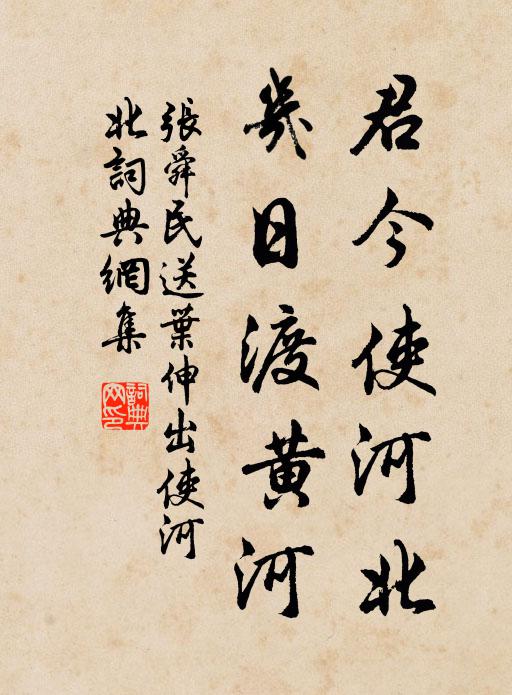 君今使河北
幾日渡黄河
張舜民送葉伸出使河
北詞典網集
詞典网印